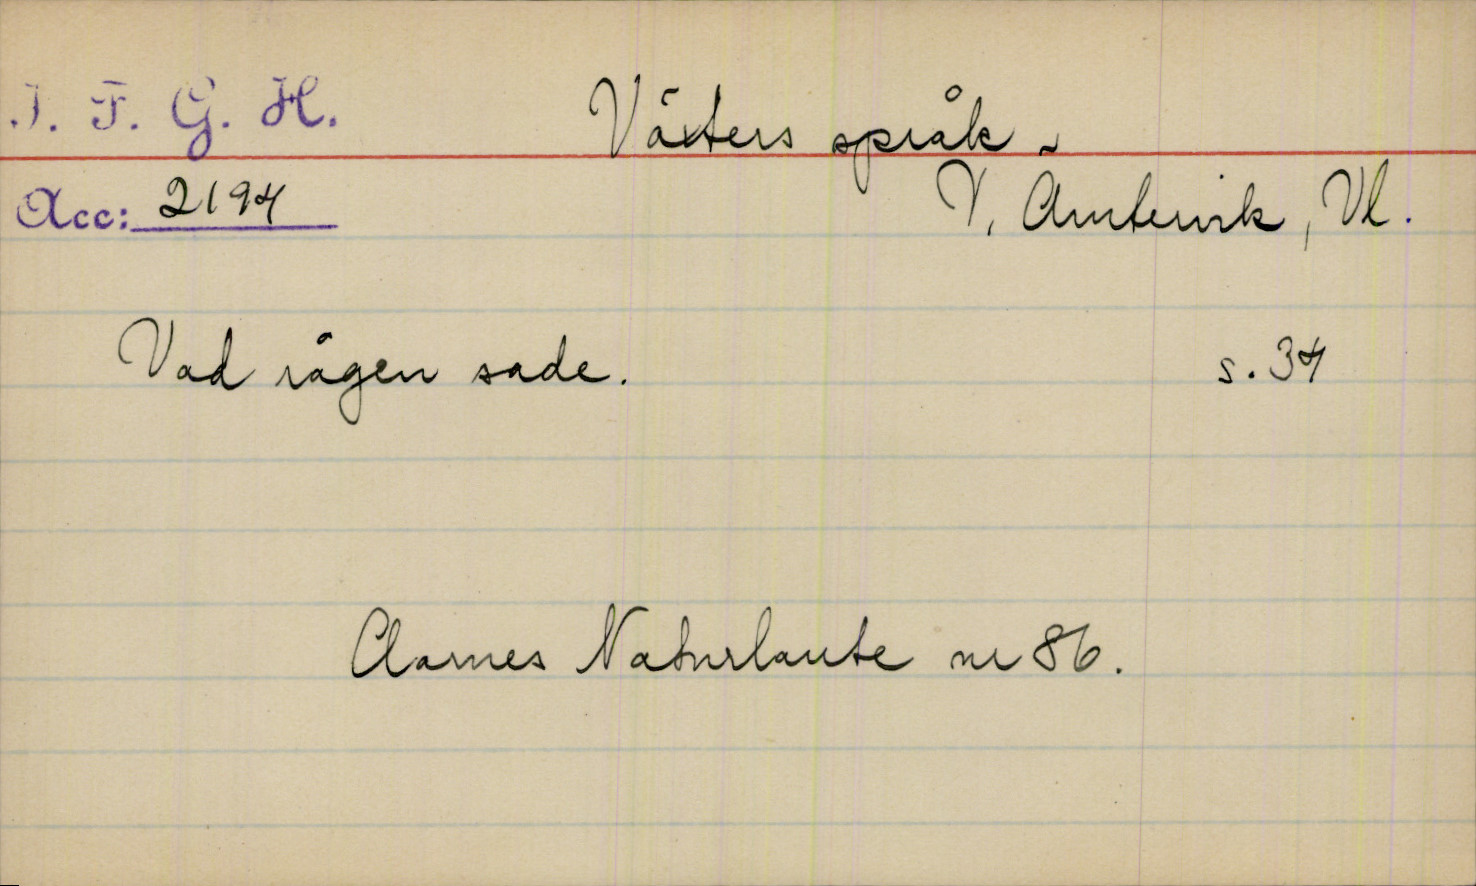 I. F. G. H.
Växters språk ~
Acc: 2194
V. Ämtervik, Vl.
Vad rågen sade.
s. 34
Aarnes Naturlaute nr 86.